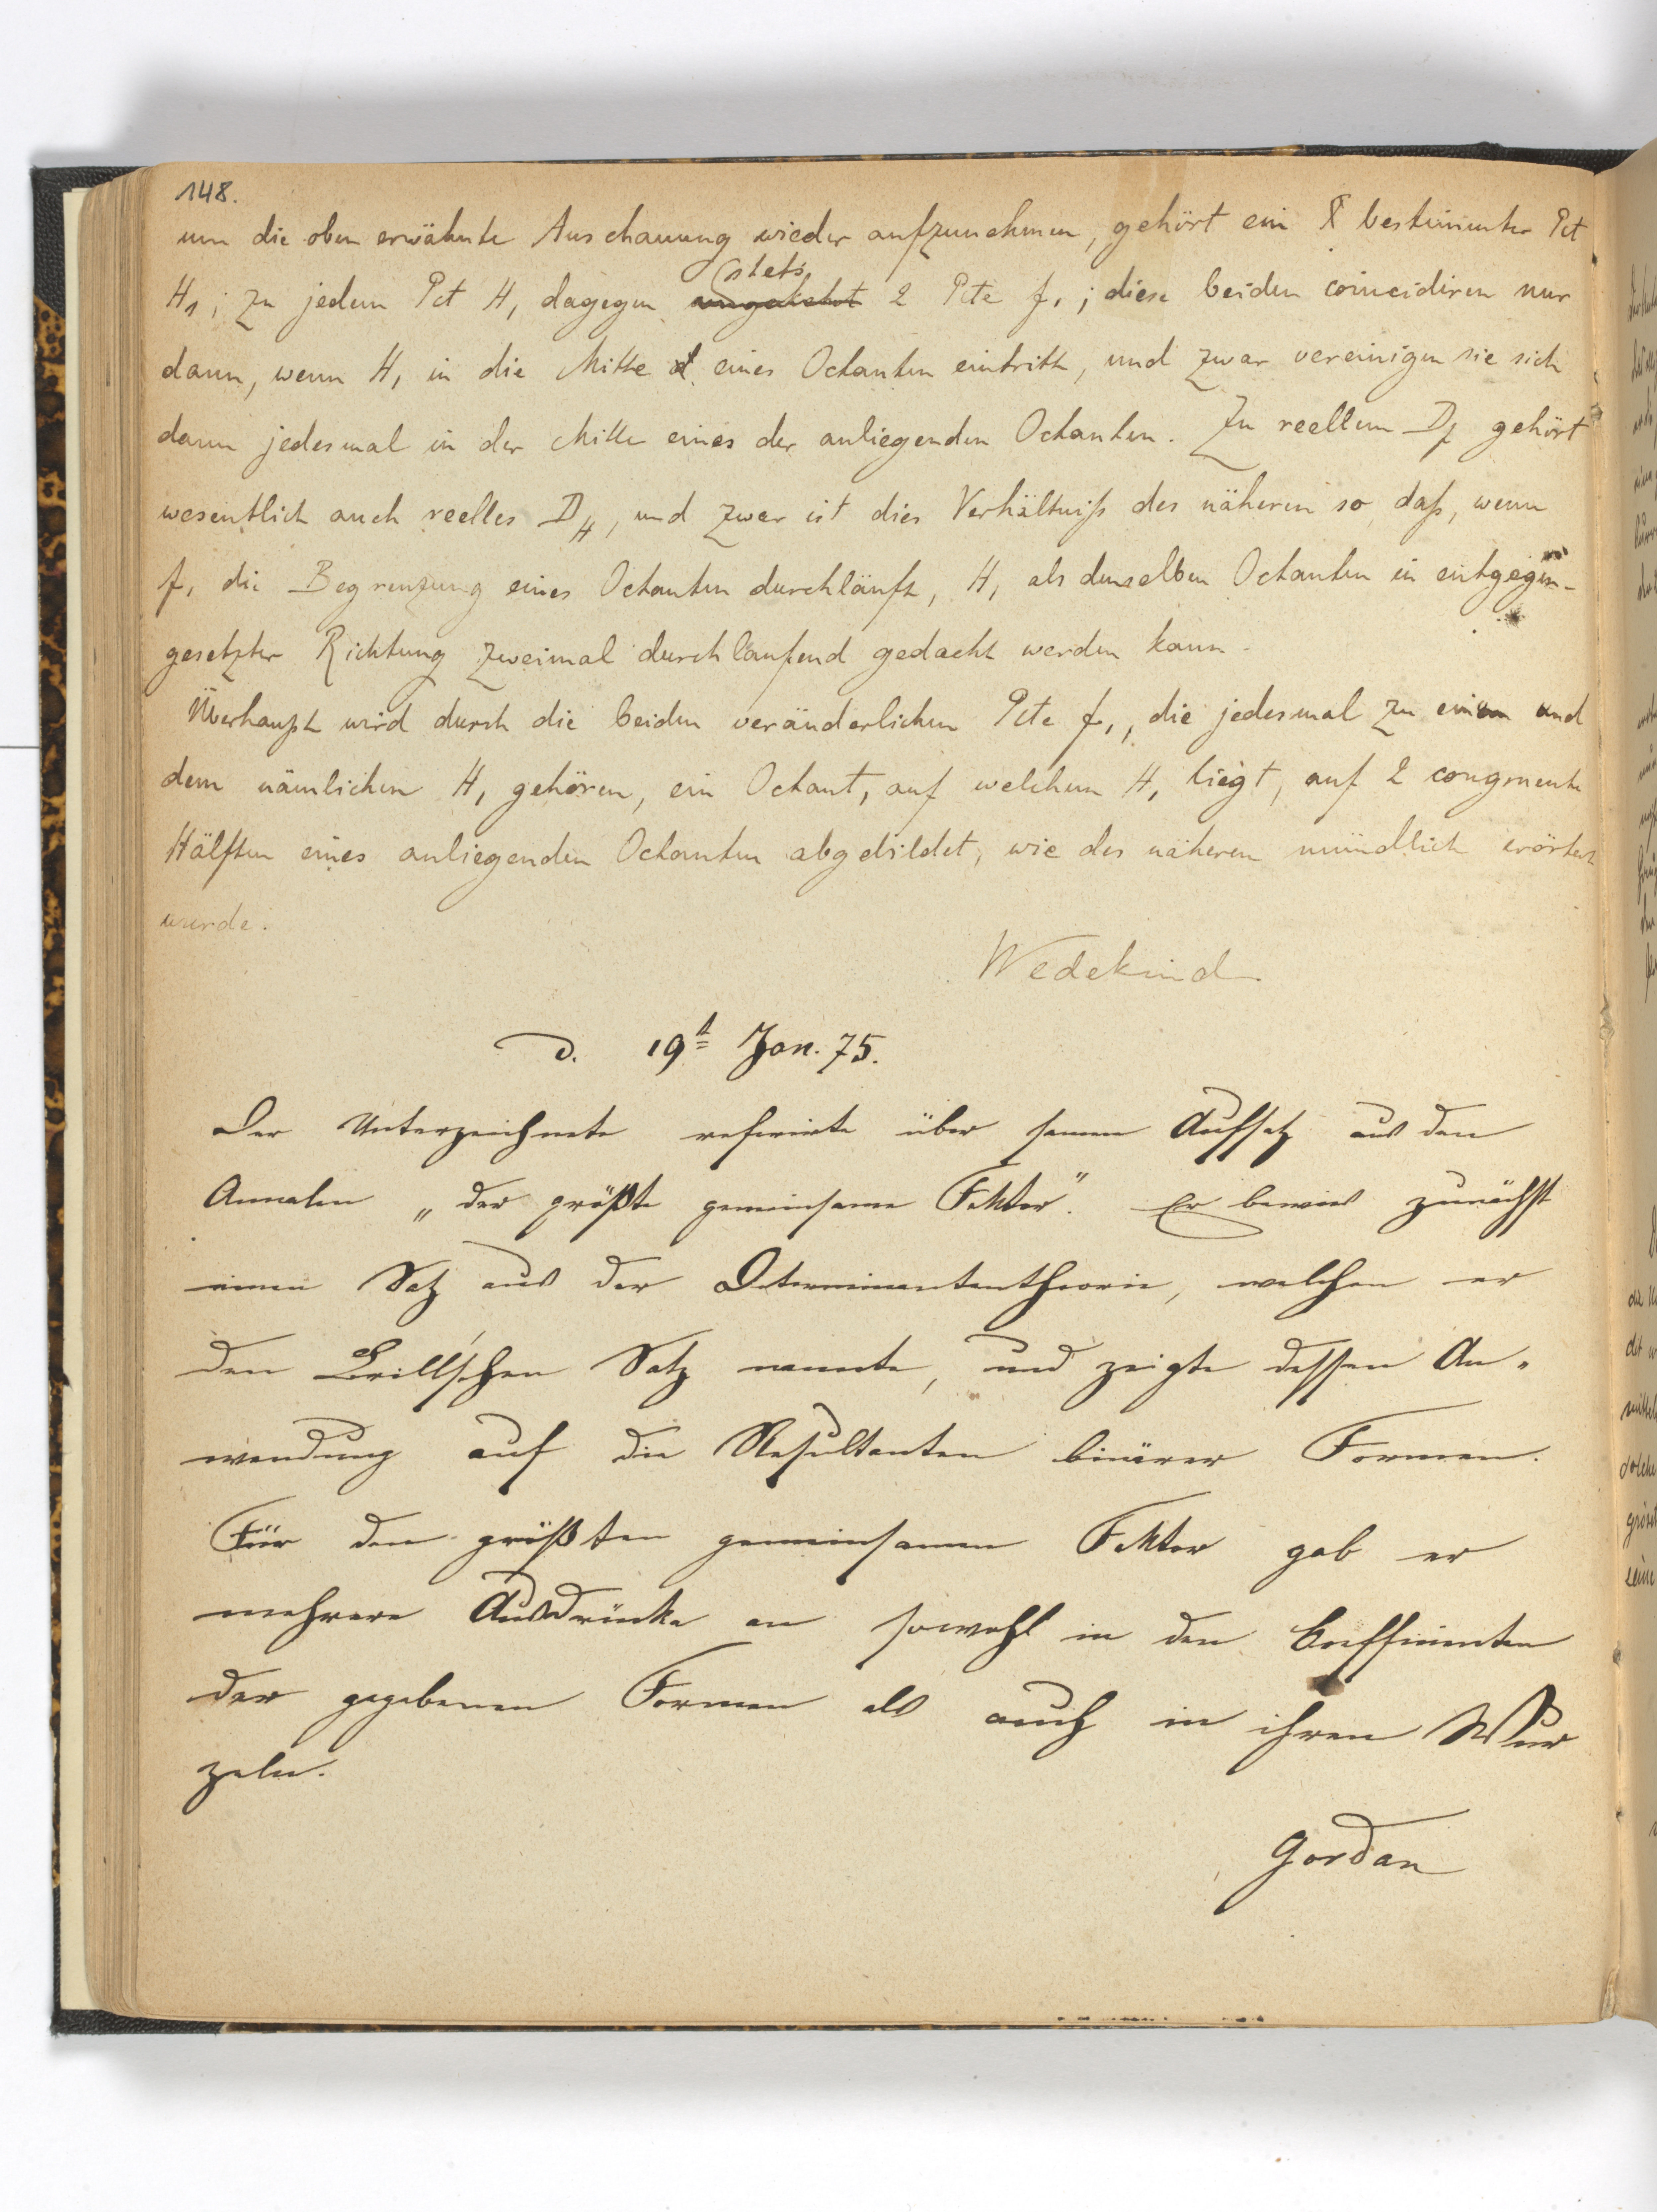 148.
um die oben erwähnte Anschauung wieder aufzunehmen, gehört ein bestimmter Pct
H₁; zu jedem Pct H₁ dagegen stets 2 Pcte f₁; diese beiden coincidiren nur
dann, wenn H₁ in die Mitte eines Octanten eintritt, und zwar vereinigen sie sich
dann jedesmal in der Mitte eines der anliegenden Octanten. Zu reellem D_f gehört
wesentlich auch reelles D_H, und zwar ist dies Verhältniß des näheren so, daß, wenn
f₁ die Begrenzung eines Octanten durchläuft, H₁ als denselben Octanten in entgegen-
gesetzter Richtung zweimal durchlaufend gedacht werden kann.
Überhaupt wird durch die beiden veränderlichen Pcte f₁, die jedesmal zu einem und
dem nämlichen H₁ gehören, ein Octant, auf welchem H₁ liegt, auf 2 congruente
Hälften eines anliegenden Octanten abgebildet, wie des näheren mündlich erörtert
wurde.
Wedekind
d. 19t Jan. 75.
Der Unterzeichnete referirte über seinen Aufsatz aus den
Annalen „der größte gemeinsame Faktor“. Er bewies zunächst
einen Satz aus der Determinantentheorie, welchen er
den Brill'schen Satz nannte, und zeigte dessen An-
wendung auf die Resultanten binärer Formen.
Für den größten gemeinsamen Faktor gab er
mehrere Ausdrücke an sowohl in den Coefficienten
der gegebenen Formen als auch in ihren Wur
zeln.
Gordan